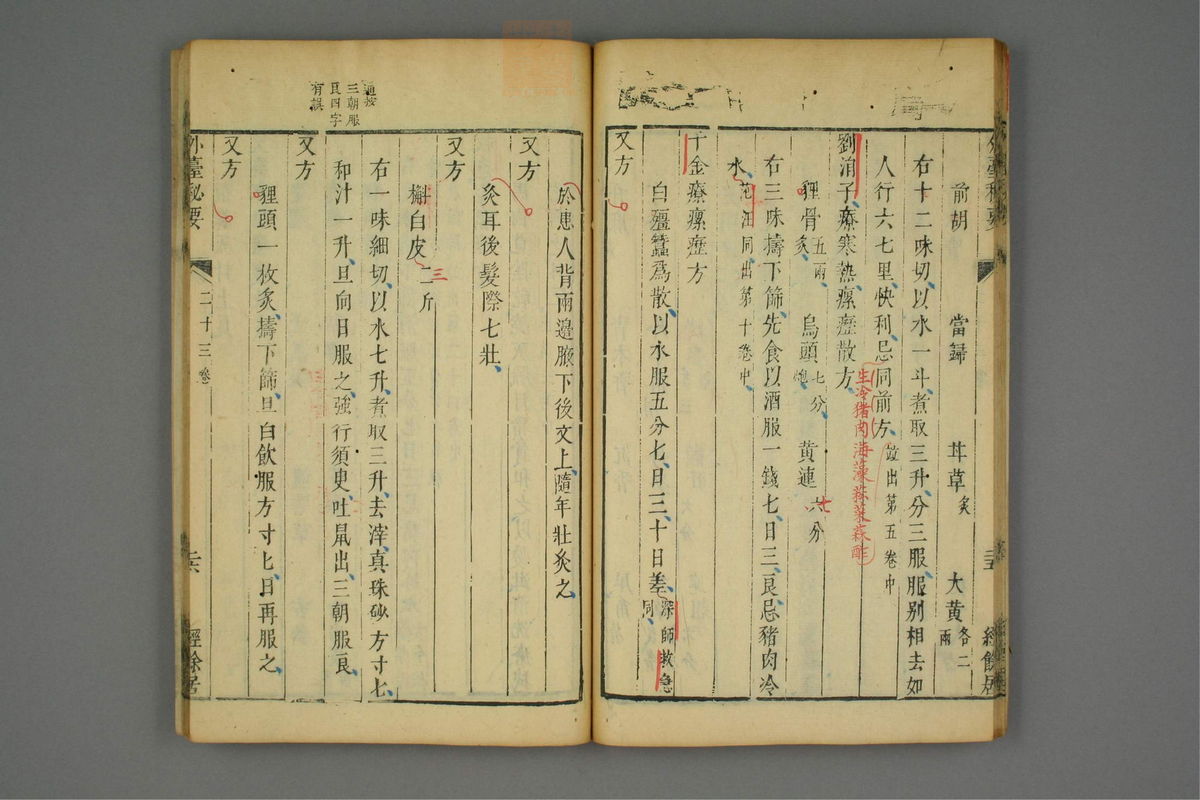 前胡　當歸　茸草炙　大黃各二兩
右十二味切、以水一斗、煮取三升、分三服、服別相去如
人行六七里、快利、忌同前方、䟽出第五卷中
生冷猪肉海藻菘菜蒜酢
劉涓子、療寒熱、瘰癧散方、
狸骨五兩炙　烏頭七分炮　黃連六分
七
右三味擣下篩、先食以酒服一錢七、日三、良、忌猪肉冷
水、范汪同、出第十卷中、
千金療瘰癧方
白殭蠶爲散、以水服五分七、日三、十日差、深師救急同、
又方
於患人背兩邊腋下後文上、隨年壯灸之、
又方
灸耳後髮際七壯、
又方
槲白皮二斤
三
右一味細切、以水七升、煮取三升、去滓、真珠砂方寸七、
和汁一升、旦向日服之、強行須臾吐鼠出、三朝服良、
通按
三朝服
良四字
有誤
又方
貍頭一枚炙、擣下篩、旦白飲服方寸匕、日再服之、
又方
外臺秘要　二十三卷　二六　經餘居